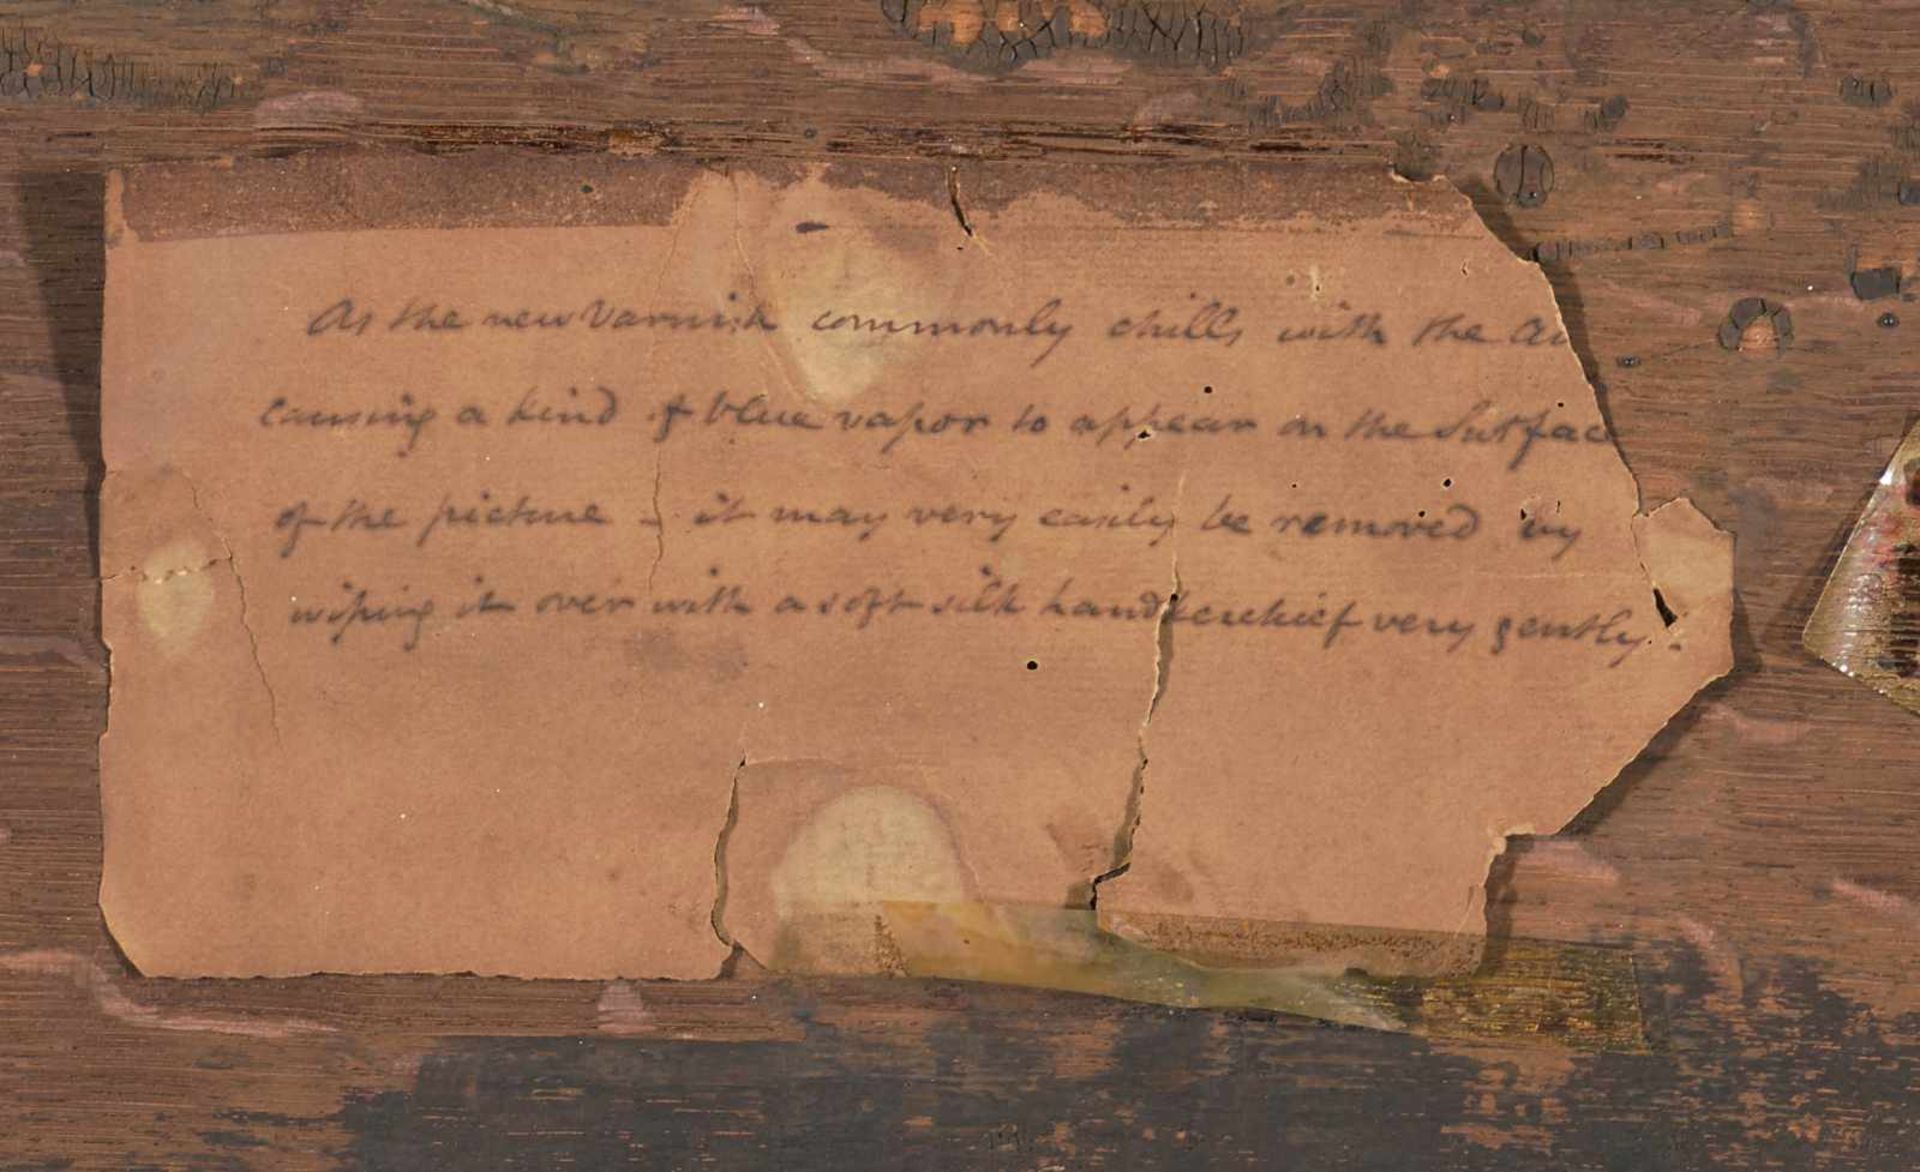 As the new Varnish commonly chills with the
causing a kind of blue vapor to appear on the Surface
of the picture - it may very easily be removed by
wiping it over with a soft silk handkerchief very gently.